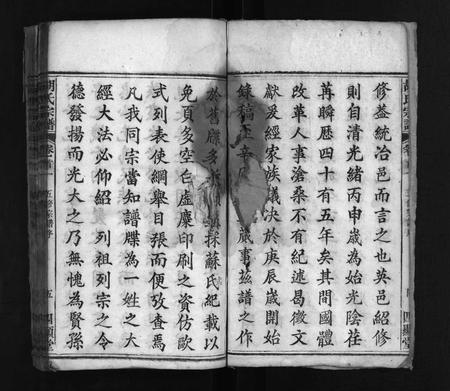 修葢統冶邑而言之也英邑紹修
則自清光緒丙申歲為始光陰荏
苒瞬歷四十有五年矣其間國體
改革人事滄桑不有紀述曷徵文
獻爰經家族議決於庚辰歲開始
錄稿至辛 歲 蕆事茲譜之作
於舊 多 採蘇氏紀載以
免頁多空白虛糜印刷之資仿歐
式列表使綱舉目張而便孜查焉
凡我同宗當知譜牒為一姓之大
經大法必仰紹 列祖列宗之令
德發揚而光大之乃無愧為賢孫
胡氏宗譜 卷首 五修宗譜序 五 四顯堂